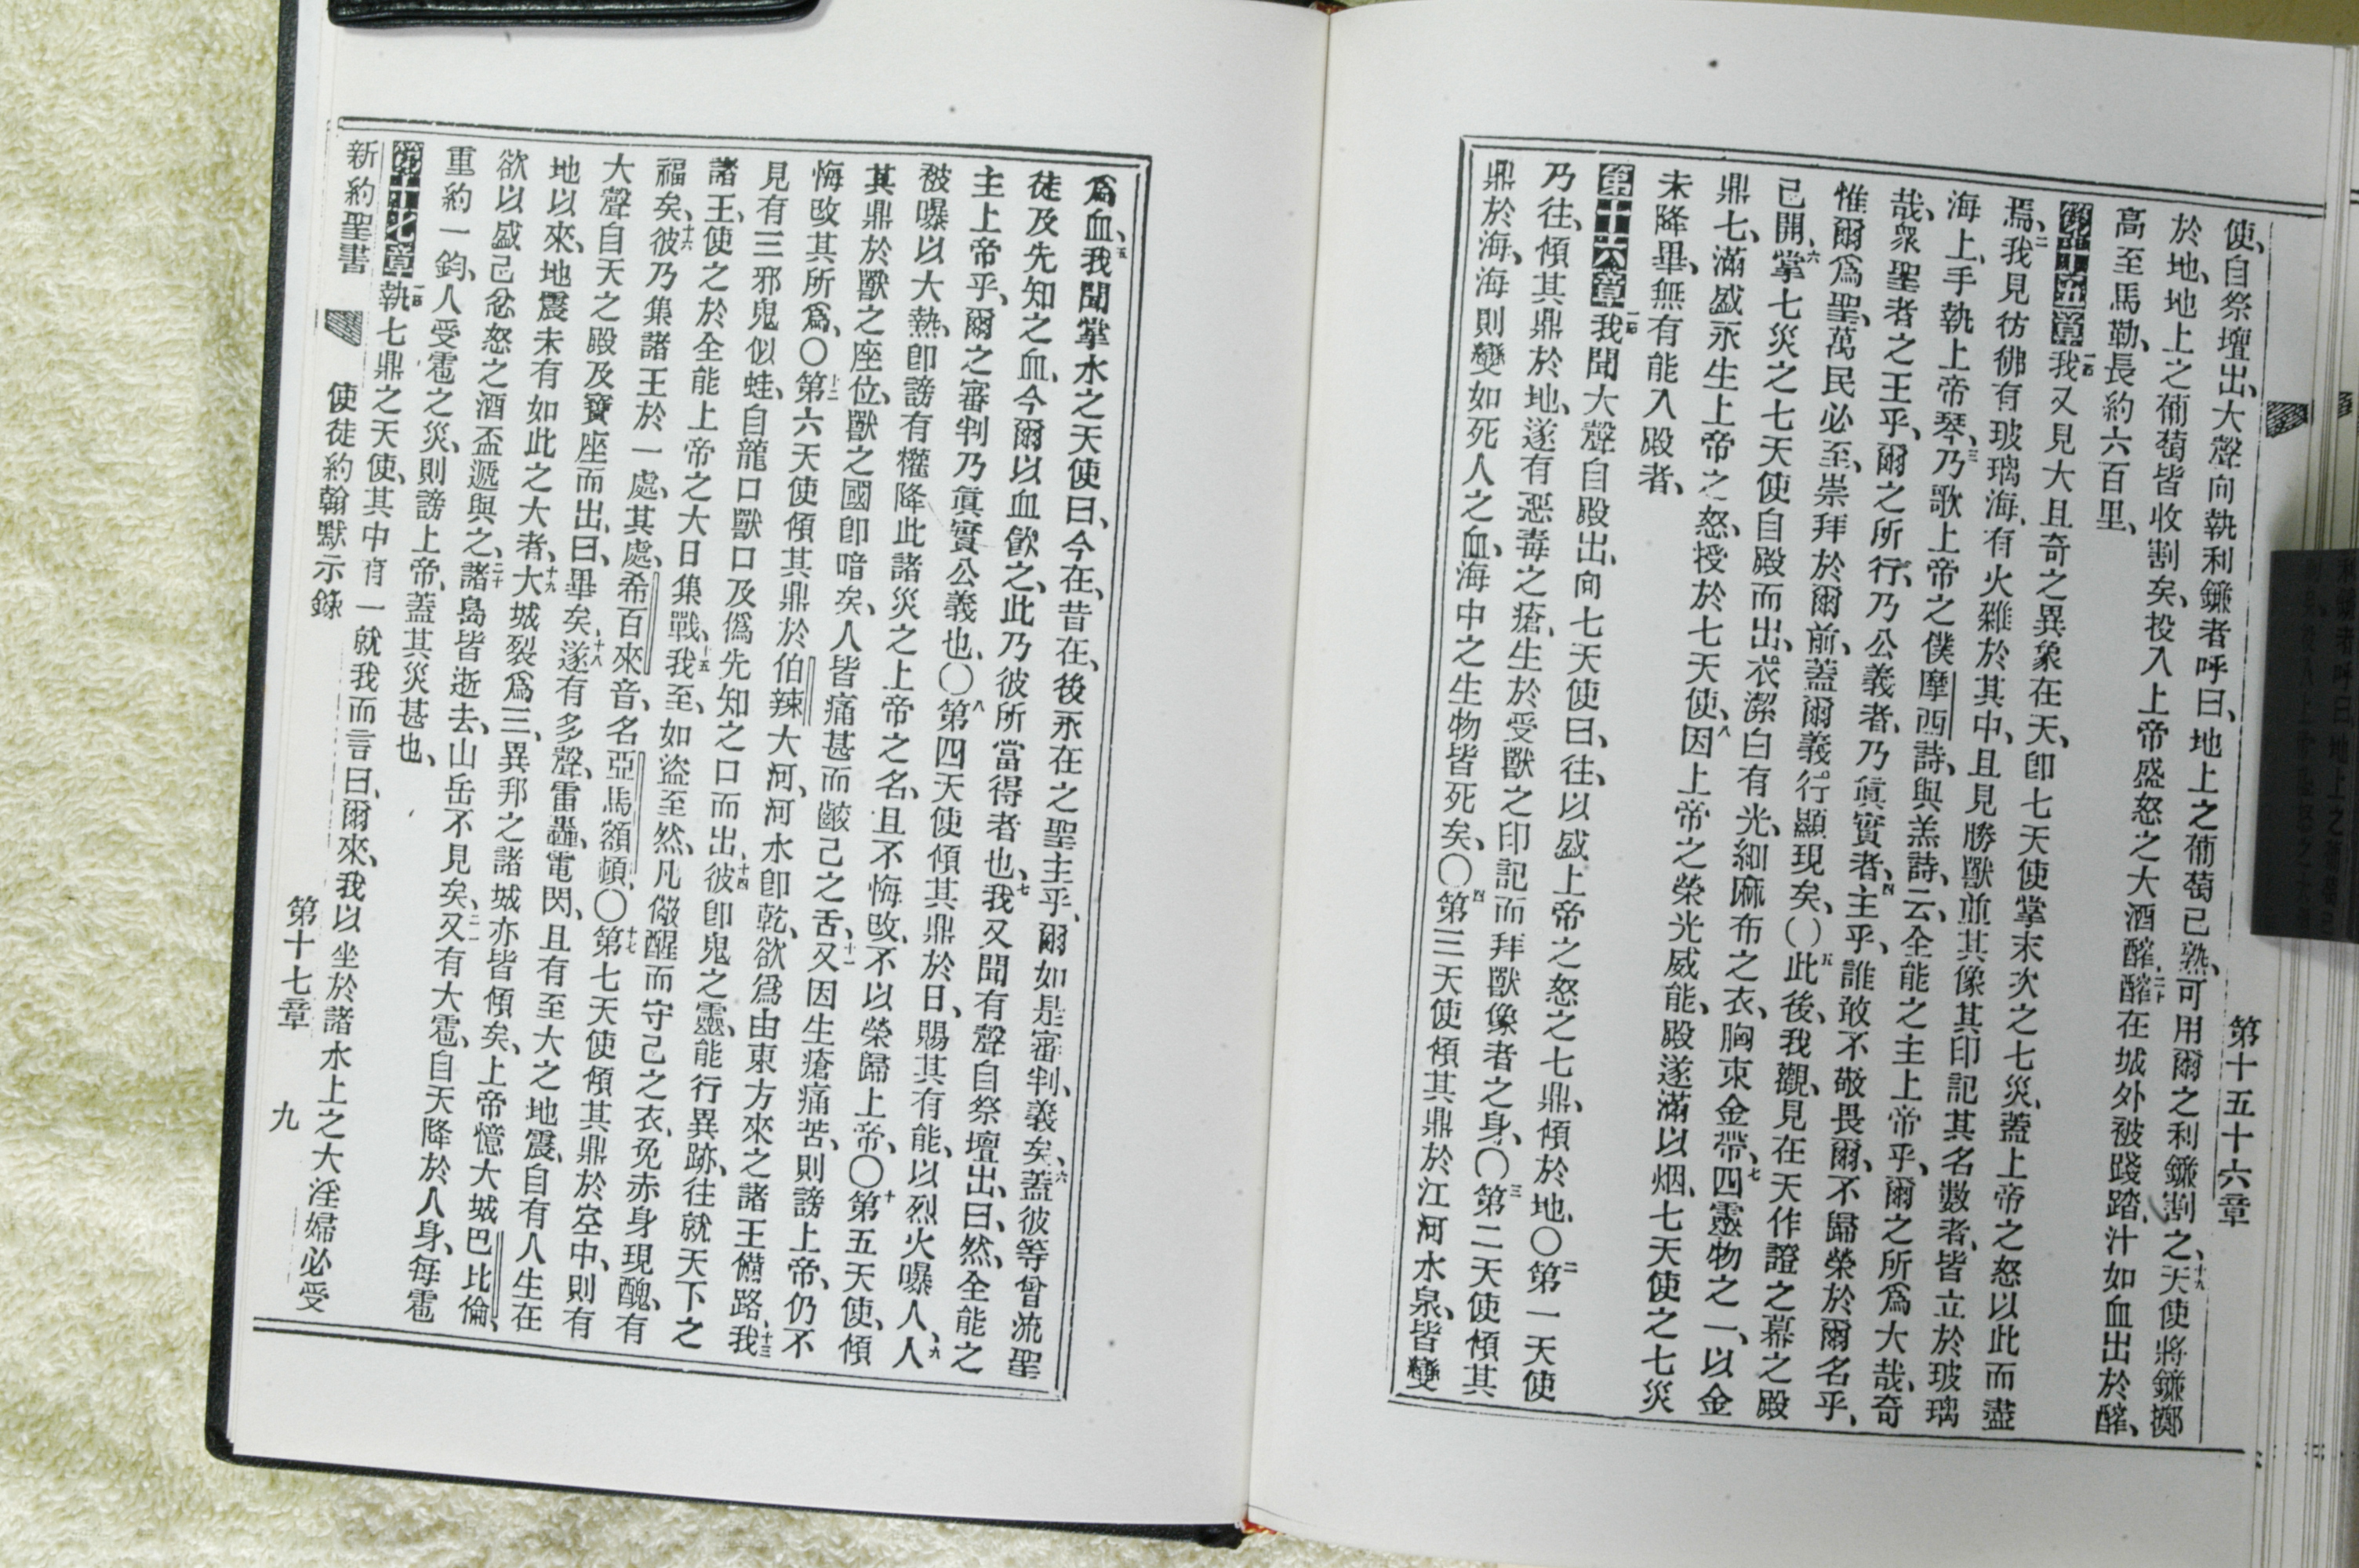 第十五十六章
使、自祭壇出、大聲向執利鎌者呼曰、地上之葡萄已熟、可用爾之利鎌割之、十九天使將鎌擲
於地、地上之葡萄皆收割矣、投入上帝盛怒之大酒醡、二十醡在城外被踐踏、汁如血出於醡、
高至馬勒、長約六百里、
第十五章一節我又見大且奇之異象在天、卽七天使掌末次之七災、蓋上帝之怒以此而盡
焉、二我見彷彿有玻璃海、有火雜於其中、且見勝獸並其像其印記其名數者、皆立於玻璃
海上、手執上帝琴、三乃歌上帝之僕摩西詩、與羔詩、云、全能之主上帝乎、爾之所爲大哉、奇
哉、衆聖者之王乎、爾之所行、乃公義者、乃眞實者、四主乎、誰敢不敬畏爾、不歸榮於爾名乎、
惟爾爲聖、萬民必至、崇拜於爾前、蓋爾義行顯現矣、〇五此後、我觀、見在天作證之幕之殿
已開、六掌七災之七天使自殿而出、衣潔白有光、細麻布之衣、胸束金帶、七四靈物之一、以金
鼎七、滿盛永生上帝之怒、授於七天使、八因上帝之榮光威能、殿遂滿以烟、七天使之七災
未降畢、無有能入殿者、
第十六章一節我聞大聲自殿出、向七天使曰、往、以盛上帝之怒之七鼎、傾於地、〇二第一天使
乃往、傾其鼎於地、遂有惡毒之瘡、生於受獸之印記而拜獸像者之身、〇三第二天使傾其
鼎於海、海則變如死人之血、海中之生物皆死矣、〇四第三天使傾其鼎於江河水泉、皆變
爲血、五我聞掌水之天使曰、今在、昔在、後永在之聖主乎、爾如是審判、義矣、六蓋彼等曾流聖
徒及先知之血、今爾以血飮之、此乃彼所當得者也、七我又聞有聲自祭壇出、曰、然、全能之
主上帝乎、爾之審判乃眞實公義也、〇八第四天使傾其鼎於日、賜其有能、以烈火曝人、九人
被曝以大熱、卽謗有權降此諸災之上帝之名、且不悔改、不以榮歸上帝、〇十第五天使、傾
其鼎於獸之座位、獸之國卽暗矣、人皆痛甚而齩己之舌、十一又因生瘡痛苦、則謗上帝、仍不
悔改其所爲、〇十二第六天使傾其鼎於伯辣大河、河水卽乾、欲爲由東方來之諸王備路、十三我
見有三邪鬼似蛙、自龍口獸口及僞先知之口而出、十四彼卽鬼之靈、能行異跡、往就天下之
諸王、使之於全能上帝之大日集戰、十五我至、如盜至然、凡儆醒而守己之衣、免赤身現醜、有
福矣、十六彼乃集諸王於一處、其處、希百來音、名亞馬額頓、〇十七第七天使傾其鼎於空中、則有
大聲自天之殿及寶座而出、曰、畢矣、十八遂有多聲、雷轟、電閃、且有至大之地震、自有人生在
地以來、地震未有如此之大者、十九大城裂爲三、異邦之諸城亦皆傾矣、上帝憶大城巴比倫、
欲以盛己忿怒之酒盃遞與之、二十諸島皆逝去、山岳不見矣、二一又有大雹、自天降於人身、每雹
重約一鈞、人受雹之災、則謗上帝、蓋其災甚也、
第十七章一節執七鼎之天使、其中有一就我而言曰、爾來、我以坐於諸水上之大淫婦必受
新約聖書 使徒約翰默示錄 第十七章 九